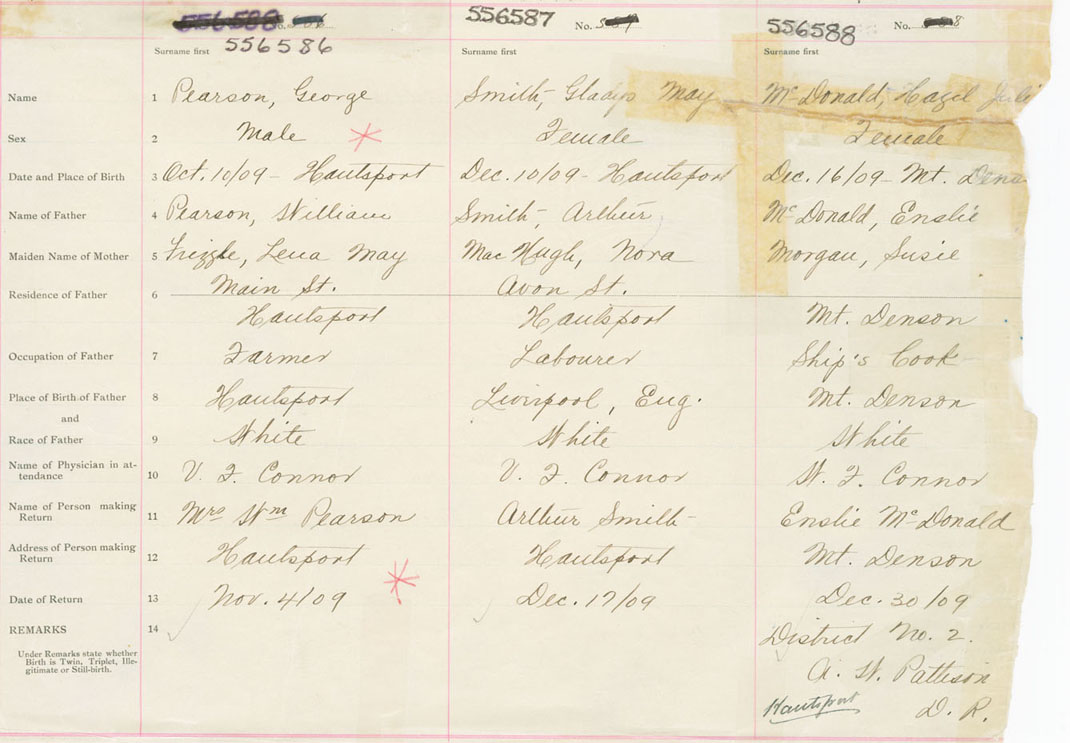 No. 556587 No. No.
556586 556588
Surname first Surname first Surname first
Name 1 Pearson, George Smith, Gladys May McDonald, Hazil
Sex 2 Male Female Female
Date and Place of Birth 3 Oct. 10/09 - Hantsport Dec. 10/09 - Hantsport Dec. 16/09 - Mt. Dens
Name of Father 4 Pearson, William Smith, Arthur McDonald, Enslie
Maiden Name of Mother 5 Frizzle, Lena May Mac Hugh, Nora Morgan, Susie
Main St. Avon St.
Residence of Father 6
Hantsport Hantsport Mt. Denson
Occupation of Father 7 Farmer Labourer Ship's Cook
Place of Birth of Father 8 Hantsport Liverpool, Eng. Mt. Denson
and
Race of Father 9 White White White
Name of Physician in at-
tendance 10 V. F. Connor V. F. Connor W. F. Connor
Name of Person making
Return 11 Mrs Wm Pearson Arthur Smith Enslie McDonald
Address of Person making
Return 12 Hantsport Hantsport Mt. Denson
Date of Return 13 Nov. 4/09 Dec. 17/09 Dec. 30/09
REMARKS 14 District No. 2.
Under Remarks state whether
Birth is Twin, Triplet, Ille-
gitimate or Still-birth.
A. W. Pattison
Hantsport D. R.